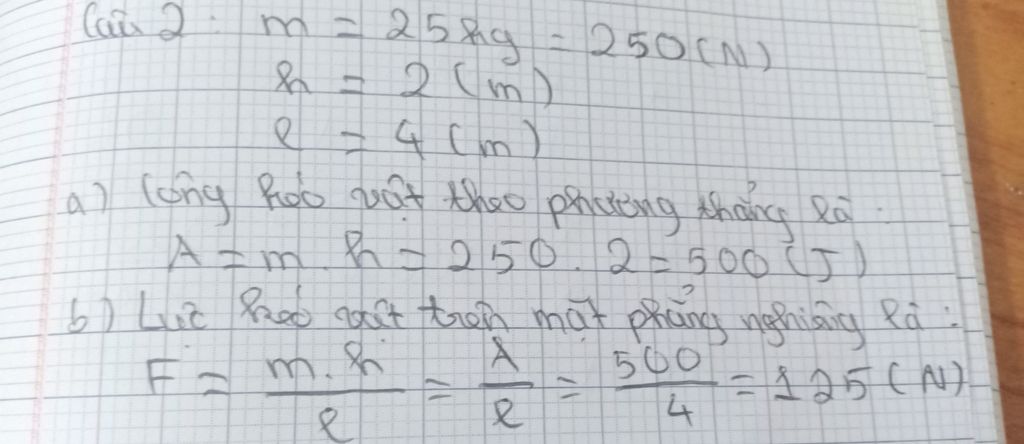 Câu 2: m = 25kg = 250 (N)
h = 2 (m)
l = 4 (m)
a) Công kéo vật theo phương thẳng là:
A = m. h = 250. 2 = 500 (J)
b) Lực kéo vật trên mặt phẳng nghiêng là:
F = m. h / l = A / l = 500 / 4 = 125 (N)